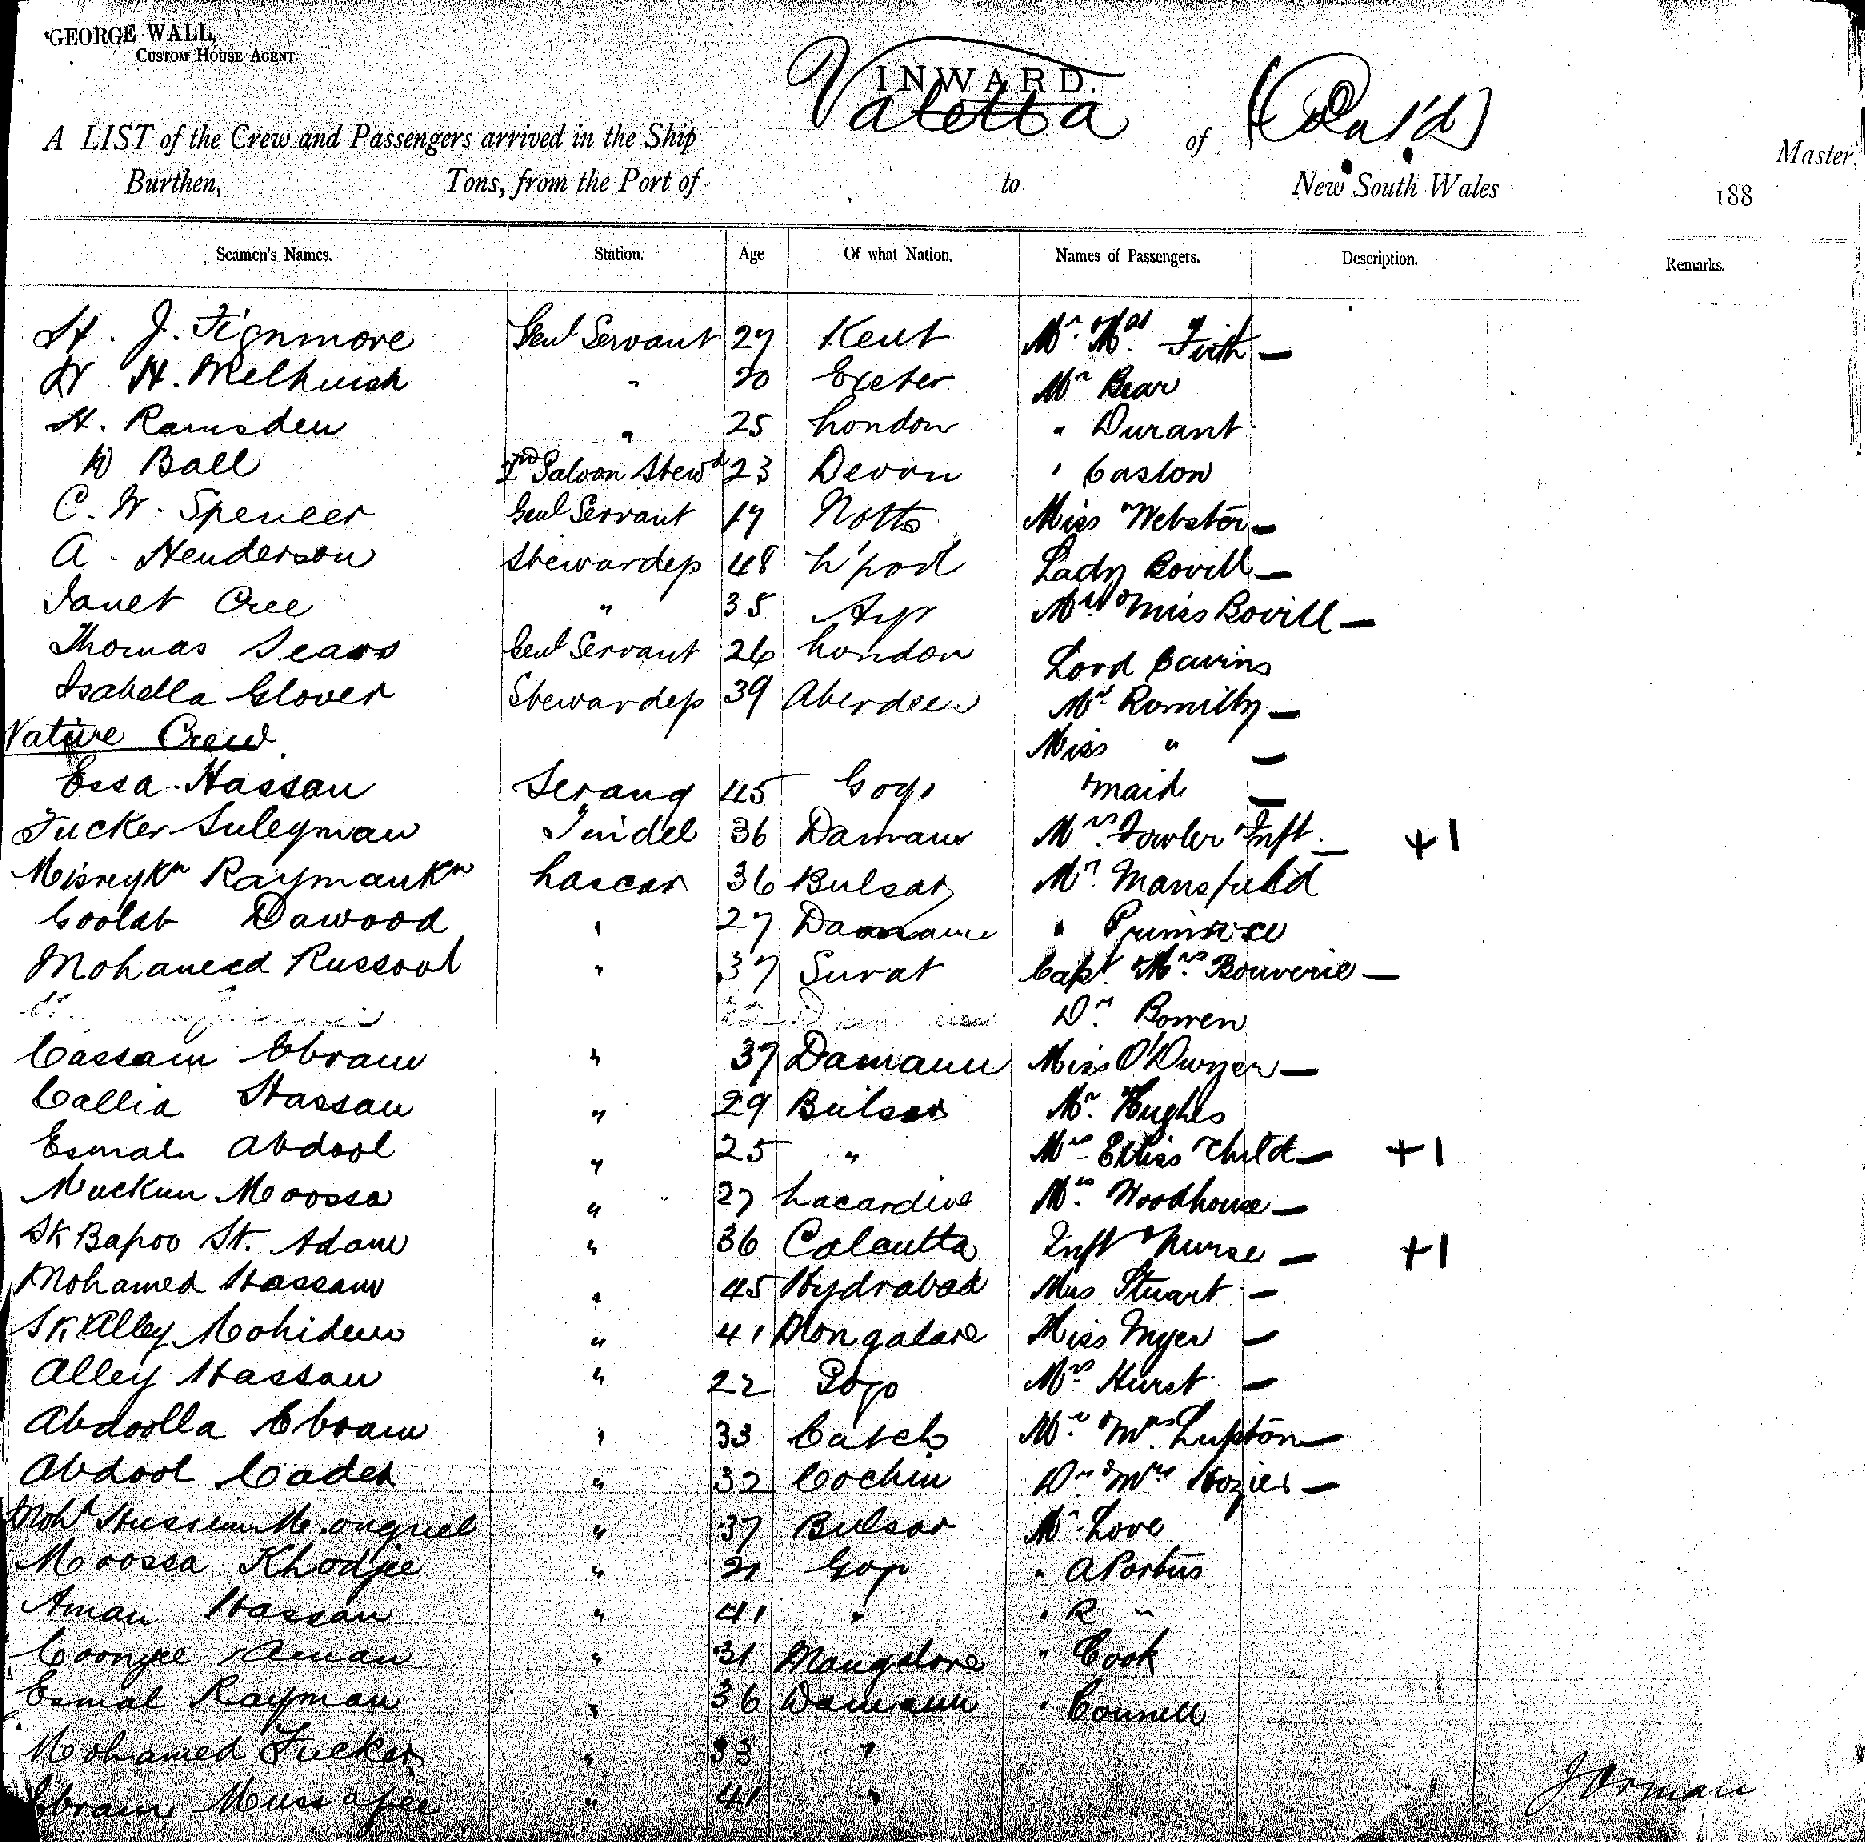 GEORGE WALL,
CUSTOM HOUSE AGENT.
INWARD.
A LIST of the Crew and Passengers arrived in the Ship Valetta of (Cont'd) Master,
Burthen, Tons, from the Port of to New South Wales 188
Seamen's Names. Station. Age Of what Nation. Names of Passengers. Description. Remarks.
H. J. Tignmore Genl Servant 27 Kent Mr & Mrs Firth —
W. H. Melhuish " 20 Exeter Mr Bear
H. Ramsden " 25 London " Durant
W Ball 2nd Saloon Stewd 23 Devon " Caslon
C. W. Spencer Genl Servant 19 Notts Miss Webster —
A. Henderson Stewardess 48 L'pool Lady Bovill —
Janet Cree " 35 Ayr Miss Bovill —
Thomas Sears Genl Servant 26 London Lord Cairns
Isabella Glover Stewardess 39 Aberdeen Mrs Romilly —
Native Crew Miss " —
Essa Hassan Serang 45 Gogo & maid —
Tucker Suleyman Tindel 36 Damaun Mrs Fowler & Inft — +1
Raymankn Lascar 36 Bulsar Mr Mansfield
Goolab Dawood " 27 Damaun " Primrose
Mohamed Russool " 37 Surat Capt & Mrs Bouverie —
Dr Bowen
Cassam Ebram " 37 Damaun Miss O'Dwyer —
Callia Hassan " 29 Bulsar Mr Hughes
Esmal Abdool " 25 " Mrs Ellis & Child — +1
Muckun Moossa " 27 Lacardive Mrs Woodhouse —
Sk Bapoo Sk. Adam " 36 Calcutta Inft & Nurse — +1
Mohamed Hassan " 45 Hydrabad Miss Stuart —
Sk Alley Mohideen " 41 Mongalore Miss Myer —
Alley Hassan " 22 Gogo Mrs Hurst —
Abdoolla Ebram " 33 Catch Mr & Mrs Lupton —
Abdool Cader " 32 Cochin Dr & Mrs Hozier —
Mohd Hussein " 37 Bulsar Mr Love
Moossa Khodjee " 21 Gogo " A Portus
Aman Hassan " 41 " " R "
Coonjee Aman " 31 Mangalore " Cook
Esmal Rayman " 36 Damaun " Connell
Mohamed Tucker " 33 "
Ebram " 41 "
J Orman